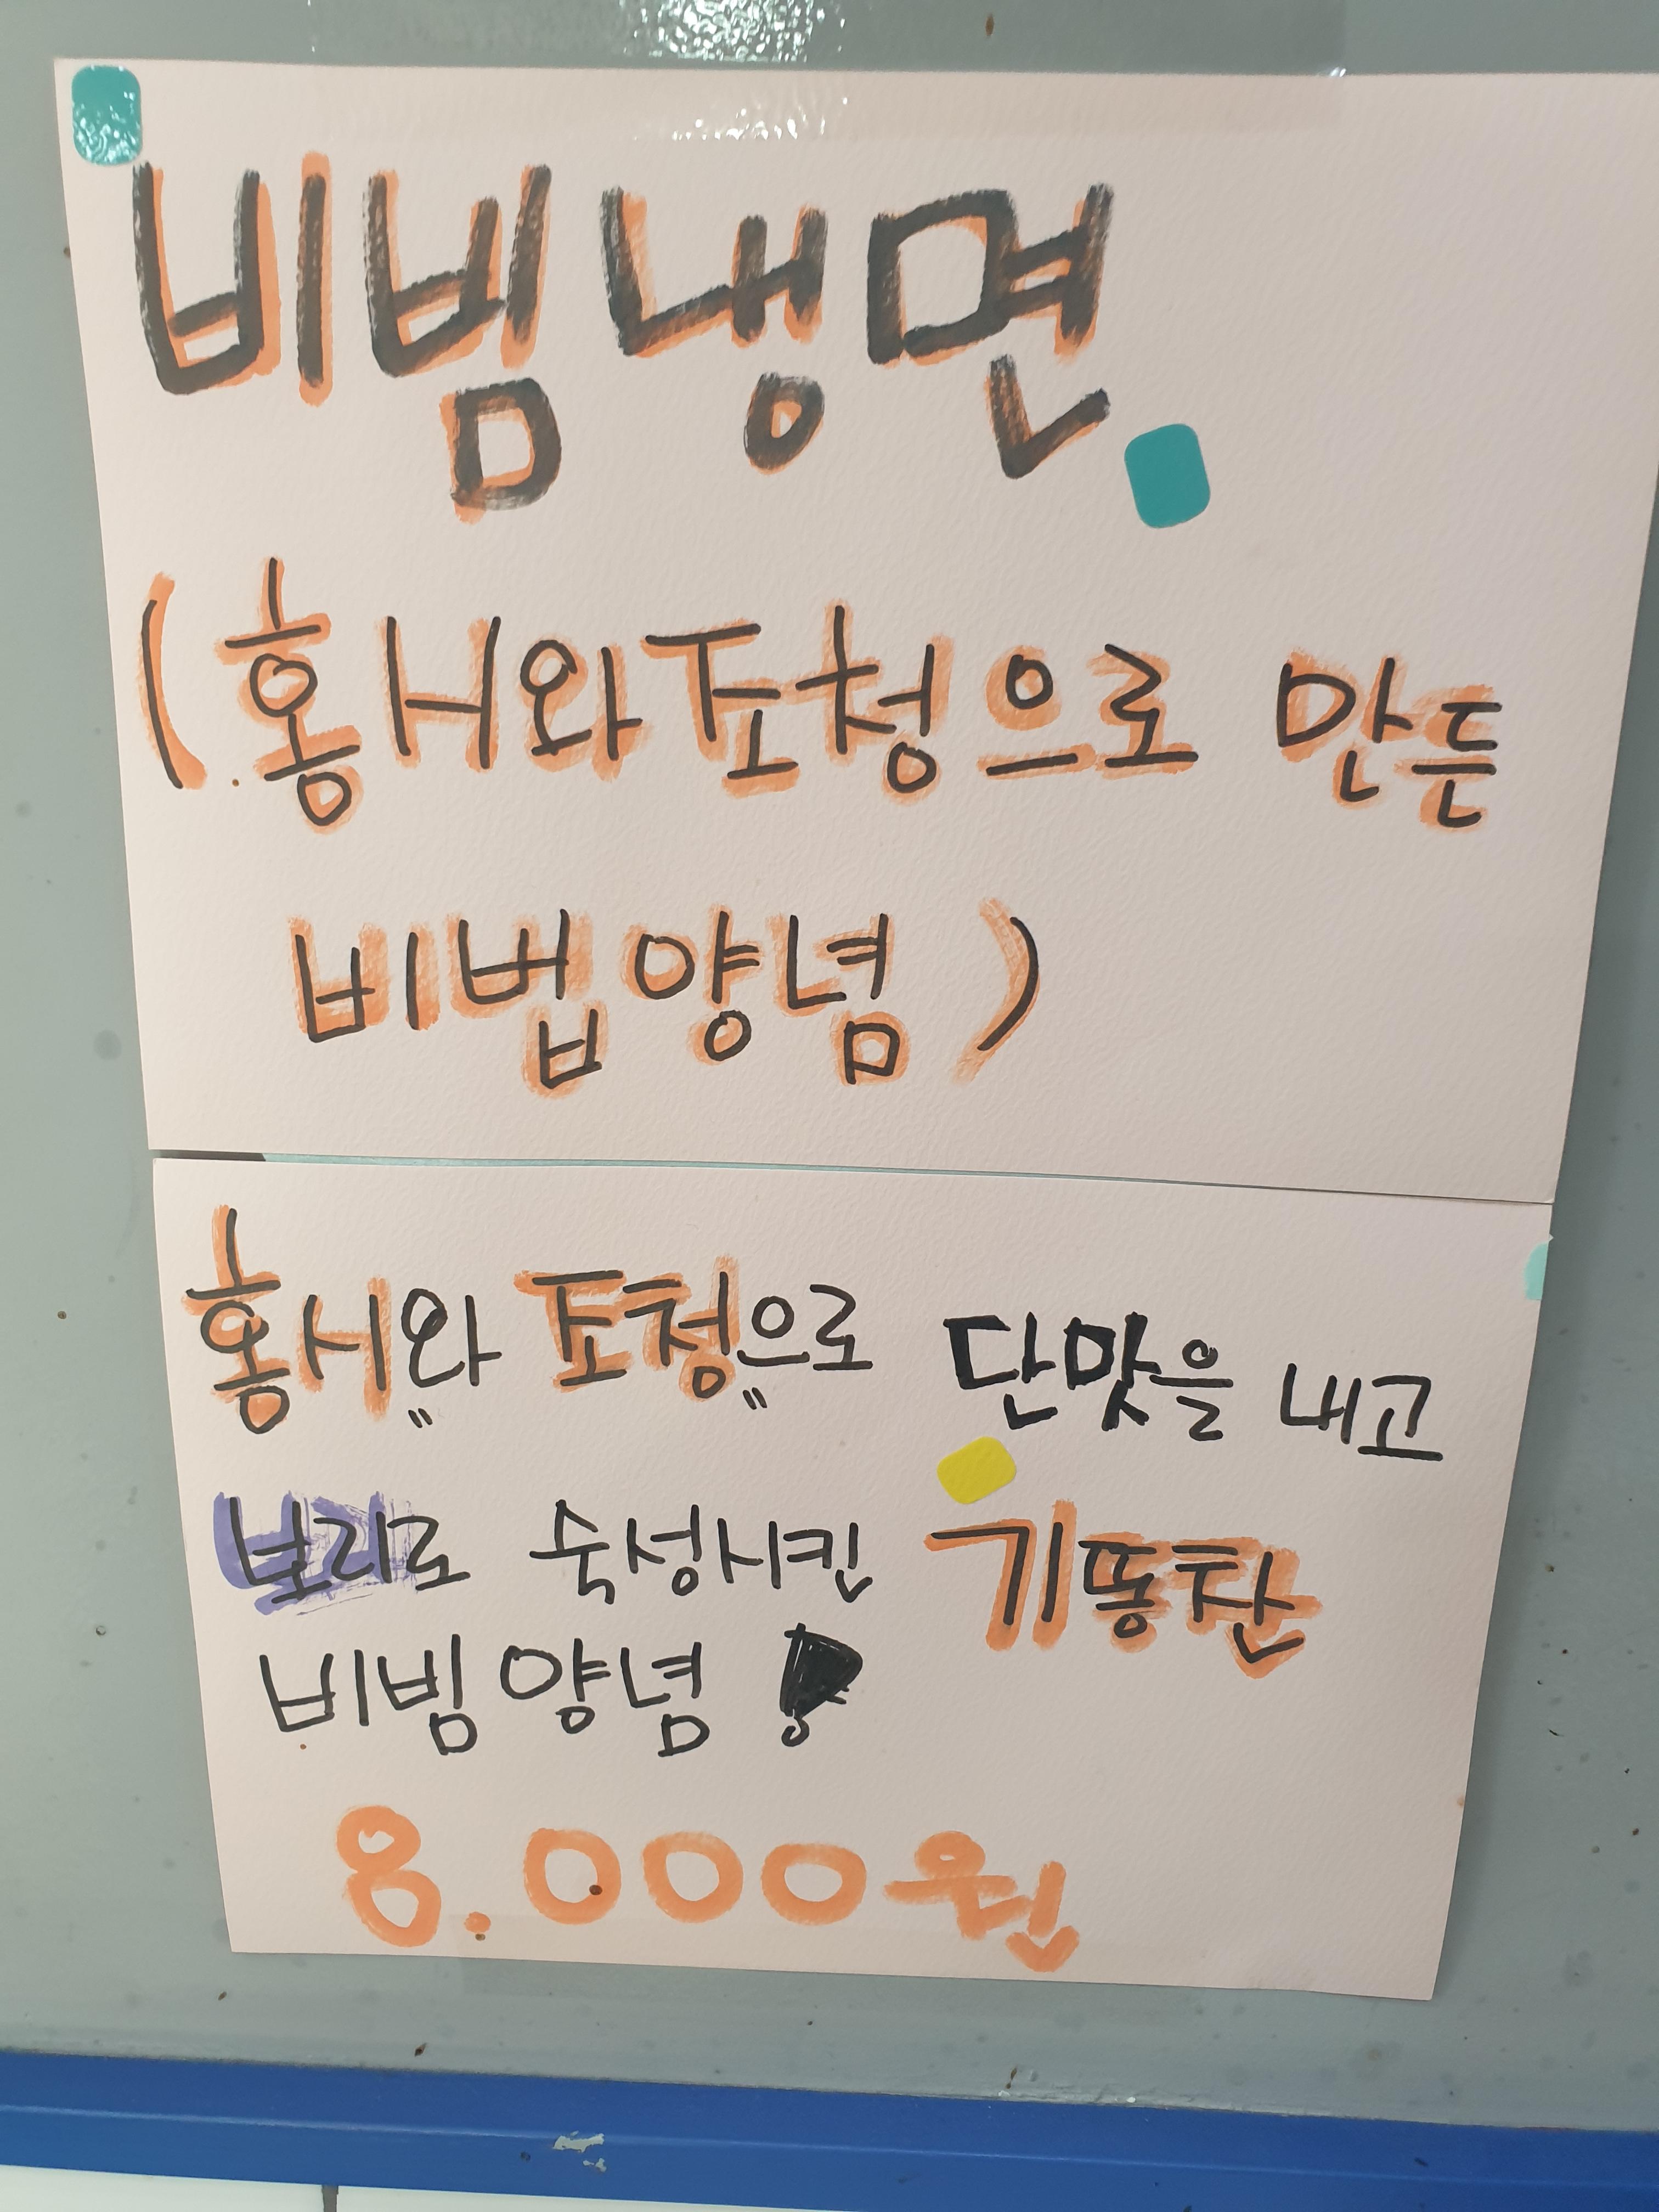 비빔냉면
(홍시와 조청으로 만든
비법양념)
홍시"와 조청"으로 단맛을 내고
보리로 숙성시킨 기똥찬
비빔양념!
8.000원